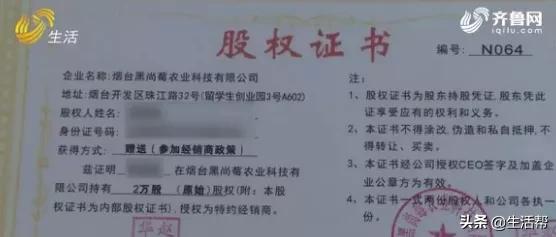 生活
齐鲁网
iqilu.com
股权证书
编号：N064
企业名称：烟台黑尚莓农业科技有限公司
地址：烟台开发区珠江路32号(留学生创业园3号A602)
股权人姓名：
身份证号码：
获得方式：赠送（参加经销商政策）
兹证明 在烟台黑尚莓农业科技有
限公司持有 2万股（原始）股权(附：本股
权证书为内部股权证书)，授权为特约经销商。
注：
1、股权证书为股东持股凭证，股东凭此
证享受应有的权利和义务。
2、本证书不得涂改，伪造和私自抵押，不
得转让、买卖。
3、本证书经公司授权CEO签字及加盖企
业公章方为有效。
4、本证书一式两份股权人和公司各执一
份。
头条 @生活帮